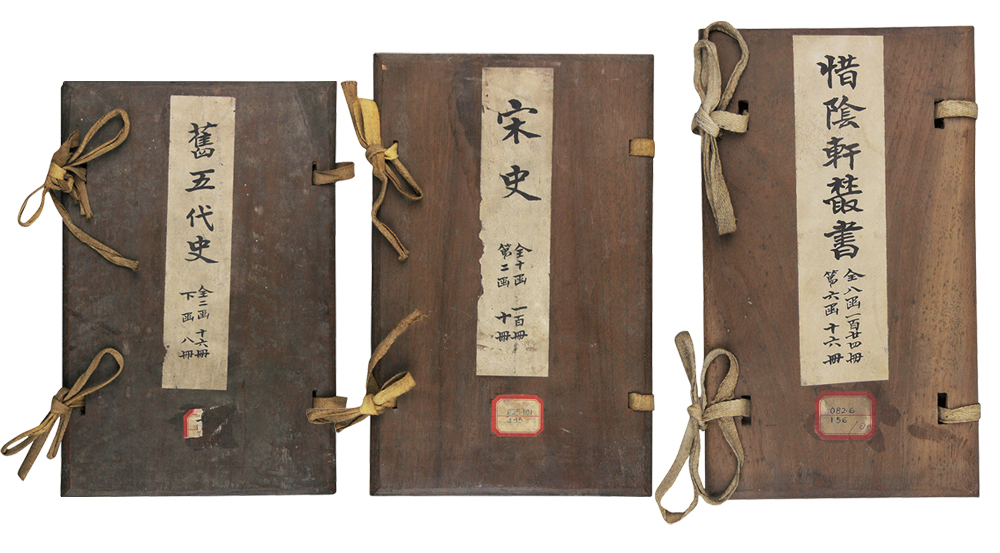 舊五代史
全二函 十六冊
下函 八冊
宋史
全十函 一百冊
第二函 十冊
惜陰軒叢書
全八函一百廿四冊
第六函 十六冊
082.6
156